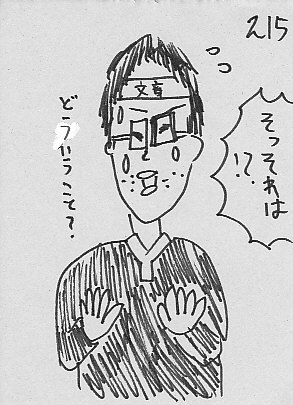 215
そっそれは
!?
文章
どういうこと？